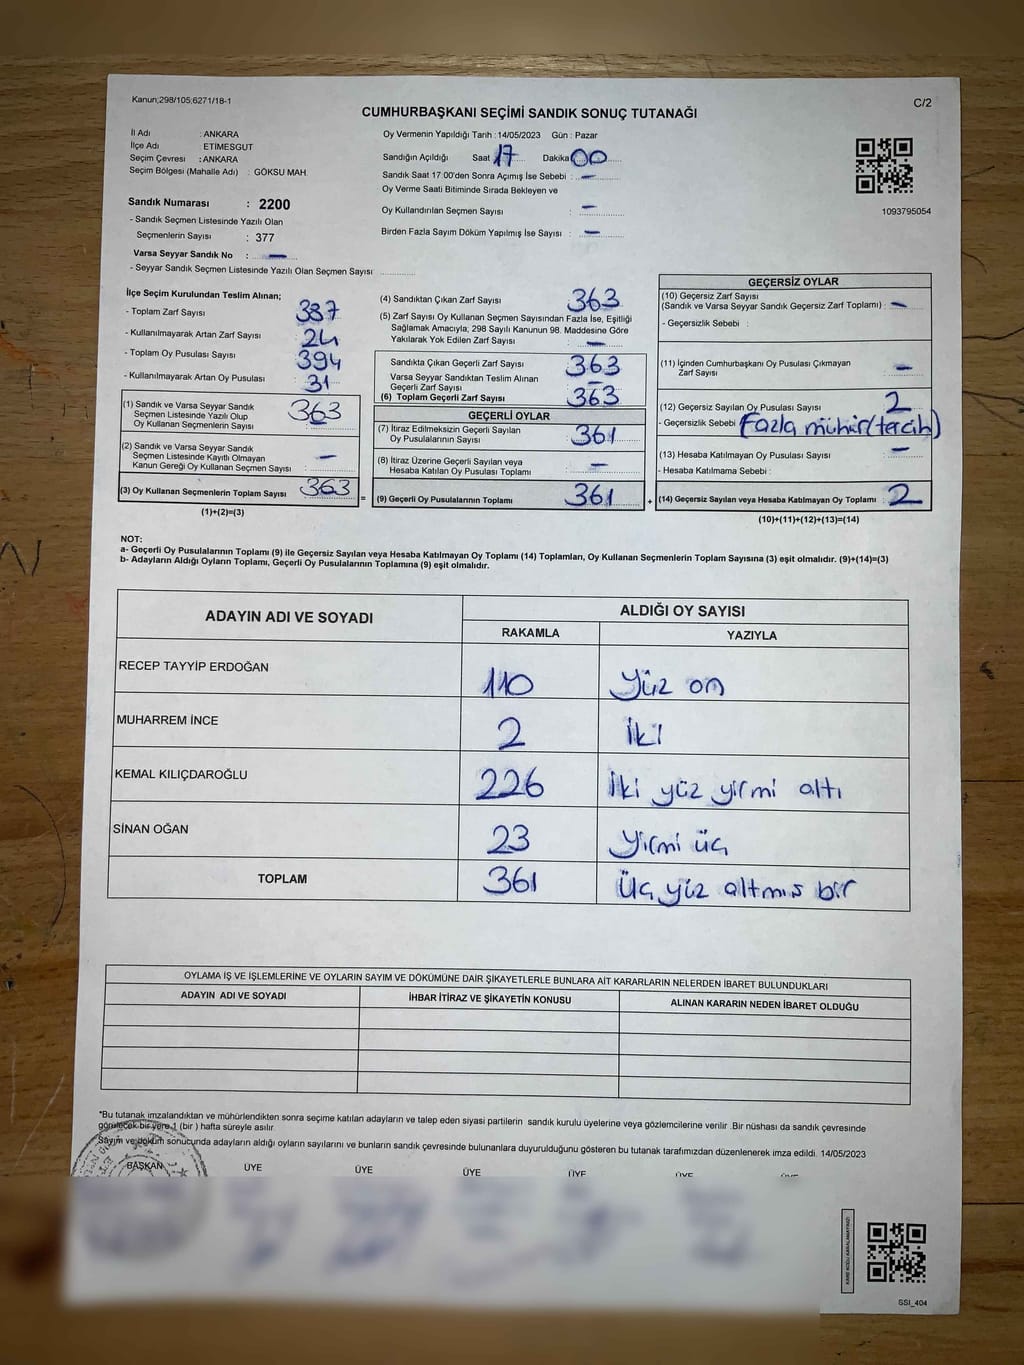 Kanun;298/105;6271/18-1
C/2
CUMHURBAŞKANI SEÇİMİ SANDIK SONUÇ TUTANAĞI
İl Adı : ANKARA
İlçe Adı : ETİMESGUT
Seçim Çevresi : ANKARA
Seçim Bölgesi (Mahalle Adı) : GÖKSU MAH.
Oy Vermenin Yapıldığı Tarih : 14/05/2023 Gün : Pazar
Sandığın Açıldığı Saat 17 Dakika 00
Sandık Saat 17:00'den Sonra Açımış İse Sebebi : —
Oy Verme Saati Bitiminde Sırada Bekleyen ve
Oy Kullandırılan Seçmen Sayısı : —
Birden Fazla Sayım Döküm Yapılmış İse Sayısı : —
1093795054
Sandık Numarası : 2200
- Sandık Seçmen Listesinde Yazılı Olan
Seçmenlerin Sayısı : 377
Varsa Seyyar Sandık No : —
- Seyyar Sandık Seçmen Listesinde Yazılı Olan Seçmen Sayısı
İlçe Seçim Kurulundan Teslim Alınan;
- Toplam Zarf Sayısı 387
- Kullanılmayarak Artan Zarf Sayısı : 24
- Toplam Oy Pusulası Sayısı 394
- Kullanılmayarak Artan Oy Pusulası : 31
(1) Sandık ve Varsa Seyyar Sandık
Seçmen Listesinde Yazılı Olup
Oy Kullanan Seçmenlerin Sayısı : 363
(2) Sandık ve Varsa Seyyar Sandık
Seçmen Listesinde Kayıtlı Olmayan
Kanun Gereği Oy Kullanan Seçmen Sayısı : —
(3) Oy Kullanan Seçmenlerin Toplam Sayısı 363
(1)+(2)=(3)
(4) Sandıktan Çıkan Zarf Sayısı 363
(5) Zarf Sayısı Oy Kullanan Seçmen Sayısından Fazla İse, Eşitliği
Sağlamak Amacıyla; 298 Sayılı Kanunun 98. Maddesine Göre
Yakılarak Yok Edilen Zarf Sayısı : —
Sandıkta Çıkan Geçerli Zarf Sayısı : 363
Varsa Seyyar Sandıktan Teslim Alınan
Geçerli Zarf Sayısı : —
(6) Toplam Geçerli Zarf Sayısı : 363
GEÇERLİ OYLAR
(7) İtiraz Edilmeksizin Geçerli Sayılan
Oy Pusulalarının Sayısı : 361
(8) İtiraz Üzerine Geçerli Sayılan veya
Hesaba Katılan Oy Pusulası Toplamı : —
= (9) Geçerli Oy Pusulalarının Toplamı : 361
GEÇERSİZ OYLAR
(10) Geçersiz Zarf Sayısı
(Sandık ve Varsa Seyyar Sandık Geçersiz Zarf Toplamı) : —
- Geçersizlik Sebebi :
(11) İçinden Cumhurbaşkanı Oy Pusulası Çıkmayan
Zarf Sayısı : —
(12) Geçersiz Sayılan Oy Pusulası Sayısı : 2
- Geçersizlik Sebebi : Fazla mühür(tercih)
(13) Hesaba Katılmayan Oy Pusulası Sayısı : —
- Hesaba Katılmama Sebebi :
+ (14) Geçersiz Sayılan veya Hesaba Katılmayan Oy Toplamı : 2
(10)+(11)+(12)+(13)=(14)
NOT:
a- Geçerli Oy Pusulalarının Toplamı (9) ile Geçersiz Sayılan veya Hesaba Katılmayan Oy Toplamı (14) Toplamları, Oy Kullanan Seçmenlerin Toplam Sayısına (3) eşit olmalıdır. (9)+(14)=(3)
b- Adayların Aldığı Oyların Toplamı, Geçerli Oy Pusulalarının Toplamına (9) eşit olmalıdır.
ADAYIN ADI VE SOYADI
ALDIĞI OY SAYISI
RAKAMLA YAZIYLA
RECEP TAYYİP ERDOĞAN 110 Yüz on
MUHARREM İNCE 2 İki
KEMAL KILIÇDAROĞLU 226 İki yüz yirmi altı
SİNAN OĞAN 23 Yirmi üç
TOPLAM 361 Üç yüz altmıs bir
OYLAMA İŞ VE İŞLEMLERİNE VE OYLARIN SAYIM VE DÖKÜMÜNE DAİR ŞİKAYETLERLE BUNLARA AİT KARARLARIN NELERDEN İBARET BULUNDUKLARI
ADAYIN ADI VE SOYADI İHBAR İTİRAZ VE ŞİKAYETİN KONUSU ALINAN KARARIN NEDEN İBARET OLDUĞU
*Bu tutanak imzalandıktan ve mühürlendikten sonra seçime katılan adayların ve talep eden siyasi partilerin sandık kurulu üyelerine veya gözlemcilerine verilir .Bir nüshası da sandık çevresinde
görülecek bir yere 1 (bir ) hafta süreyle asılır.
Sayım ve döküm sonucunda adayların aldığı oyların sayılarını ve bunların sandık çevresinde bulunanlara duyurulduğunu gösteren bu tutanak tarafımızdan düzenlenerek imza edildi. 14/05/2023
BAŞKAN ÜYE ÜYE ÜYE ÜYE ÜYE
SSI_404